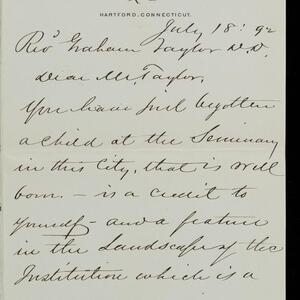 HARTFORD, CONNECTICUT.
July 18: 92
Revd Graham Taylor D.D.
Dear Mr. Taylor,
You have just begotten
a child at the Seminary
in this City, that is well
born. - is a credit to
yourself - and a feature
in the Landscape of the
Institution which is a